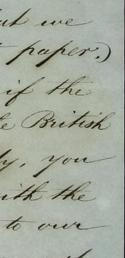 we
paper.)
if the
British
you
with the
to our